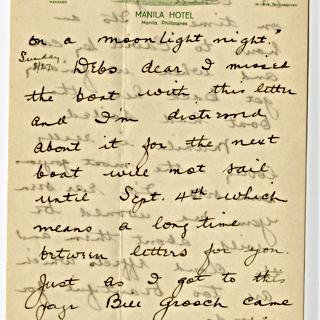 MANILA HOTEL
Manila, Philippines
on a moonlight night."
Sunday
8/27
Debs dear I missed
the boat with this letter
and I'm distressed
about it for the next
boat will not sail
until Sept. 4th which
means a long time
between letters for you.
Just as I got to this
page Bill Grooch came